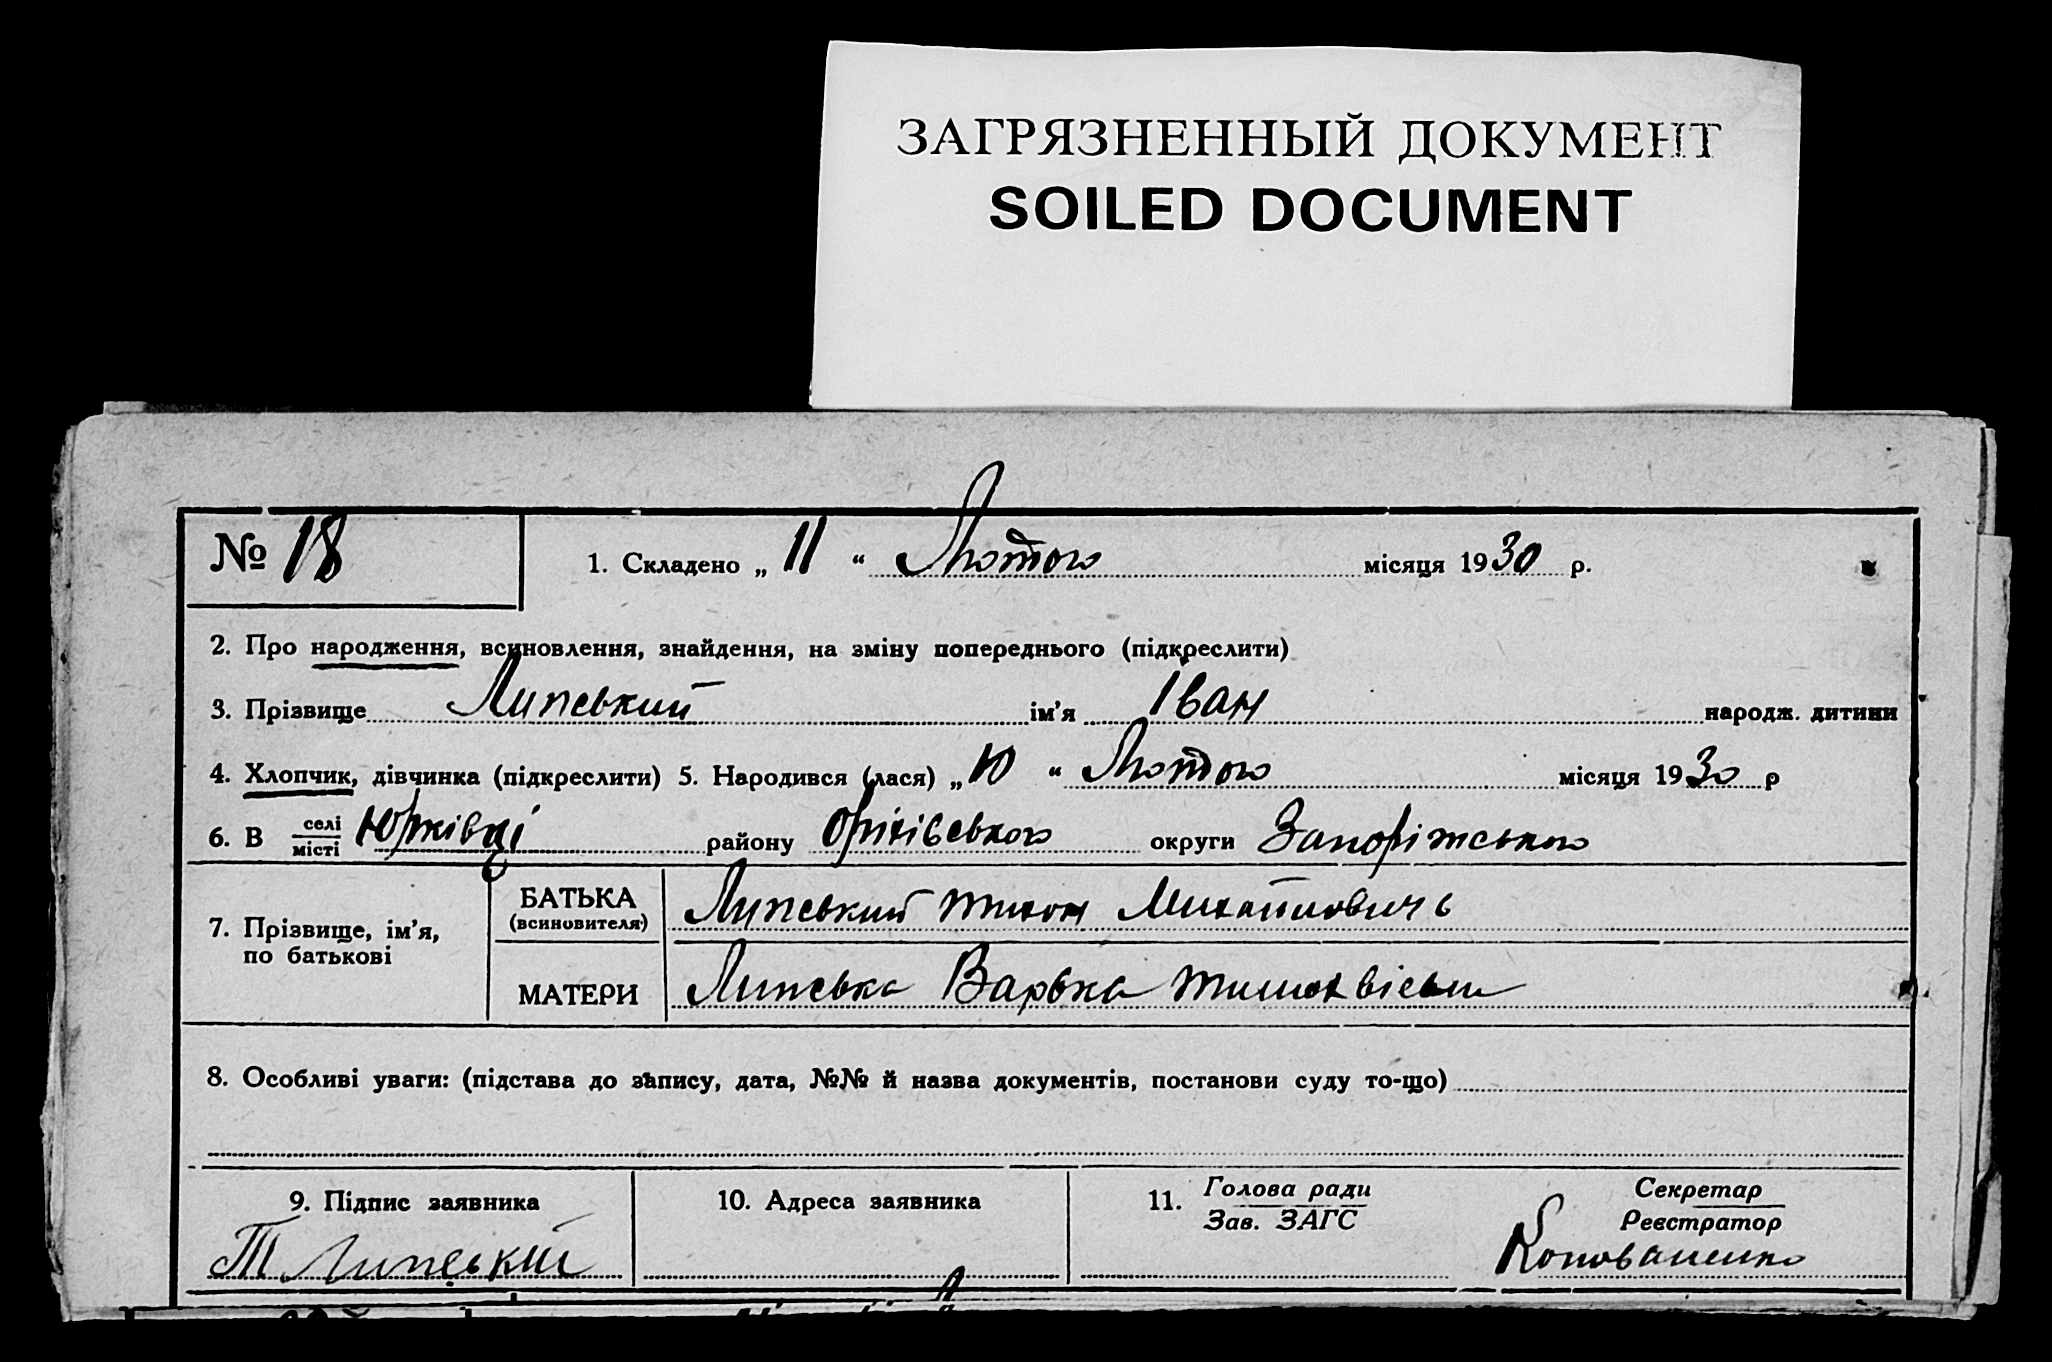 ЗАГРЯЗНЕННЫЙ ДОКУМЕНТ
SOILED DOCUMENT
№ 18
1. Складено „ 11 “ Лютого місяця 1930 р.
2. Про народження, всиновлення, знайдення, на зміну попереднього (підкреслити)
3. Прізвище Липський ім’я Іван народж. дитини
4. Хлопчик, дівчинка (підкреслити) 5. Народився (лася) „ 10 “ Лютого місяця 1930 р
6. В селі місті Юрківці району Оріхівського округи Запоріжського
7. Прізвище, ім’я, по батькові
БАТЬКА (всиновителя) Липський Тихон Михайловичь
МАТЕРИ Липська Варька
8. Особливі уваги: (підстава до запису, дата, №№ й назва документів, постанови суду то-що)
9. Підпис заявника
Т Липський
10. Адреса заявника
11. Голова ради
Зав. ЗАГС
Секретар
Реєстратор